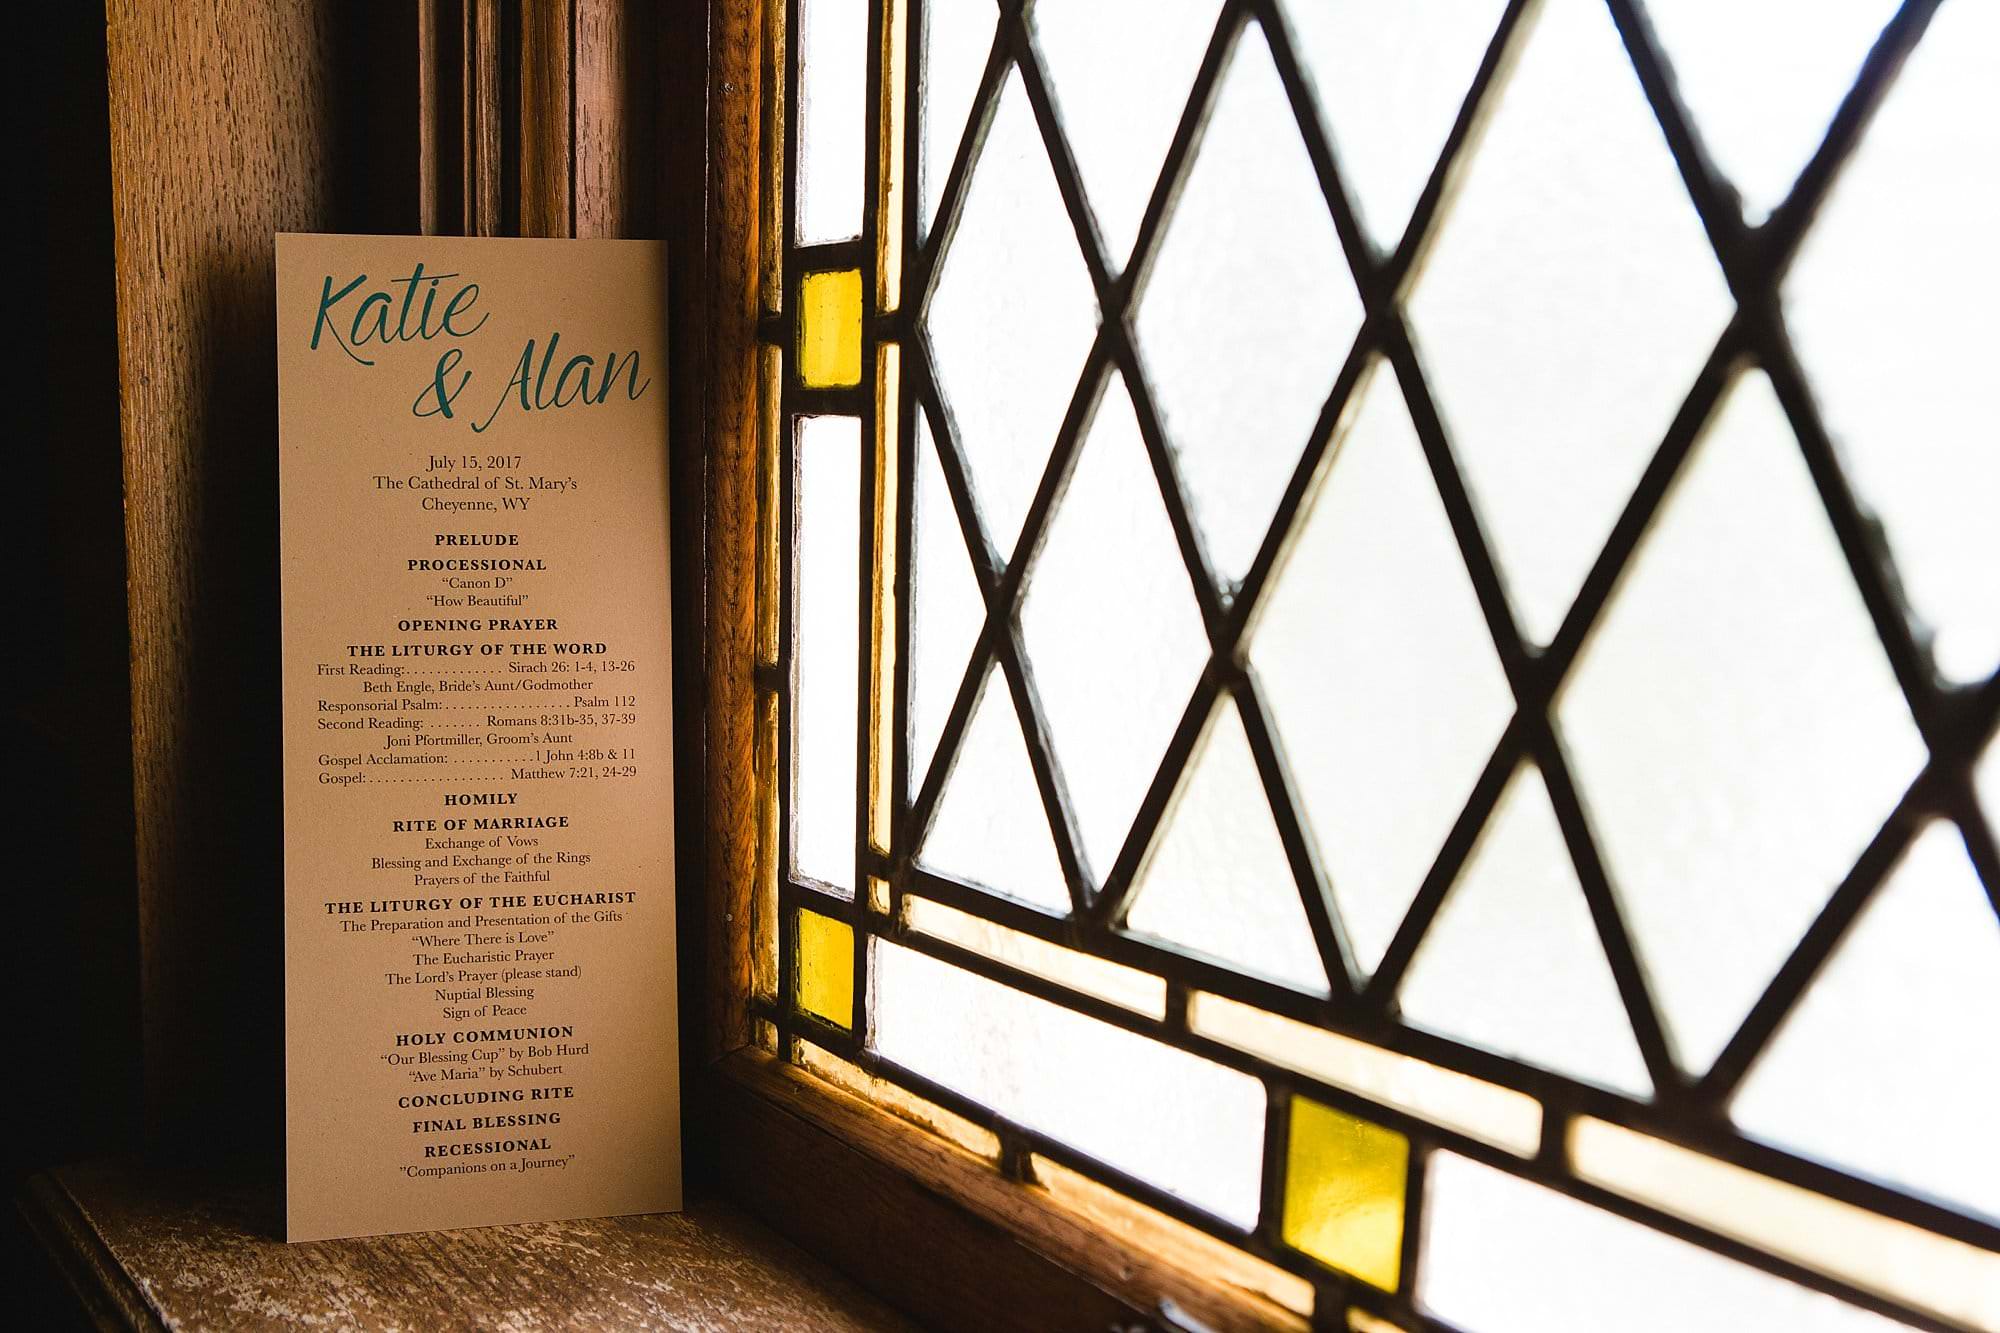 Katie
& Alan
July 15, 2017
The Cathedral of St. Mary's
Cheyenne, WY
PRELUDE
PROCESSIONAL
“Canon D”
“How Beautiful”
OPENING PRAYER
THE LITURGY OF THE WORD
First Reading:. . . . . . . . . . . . . Sirach 26: 1-4, 13-26
Beth Engle, Bride's Aunt/Godmother
Responsorial Psalm:. . . . . . . . . . . . . . . . . Psalm 112
Second Reading: . . . . . . . Romans 8:31b-35, 37-39
Joni Pfortmiller, Groom's Aunt
Gospel Acclamation: . . . . . . . . . . . 1 John 4:8b & 11
Gospel:. . . . . . . . . . . . . . . . . . Matthew 7:21, 24-29
HOMILY
RITE OF MARRIAGE
Exchange of Vows
Blessing and Exchange of the Rings
Prayers of the Faithful
THE LITURGY OF THE EUCHARIST
The Preparation and Presentation of the Gifts
“Where There is Love”
The Eucharistic Prayer
The Lord's Prayer (please stand)
Nuptial Blessing
Sign of Peace
HOLY COMMUNION
“Our Blessing Cup” by Bob Hurd
“Ave Maria” by Schubert
CONCLUDING RITE
FINAL BLESSING
RECESSIONAL
”Companions on a Journey”